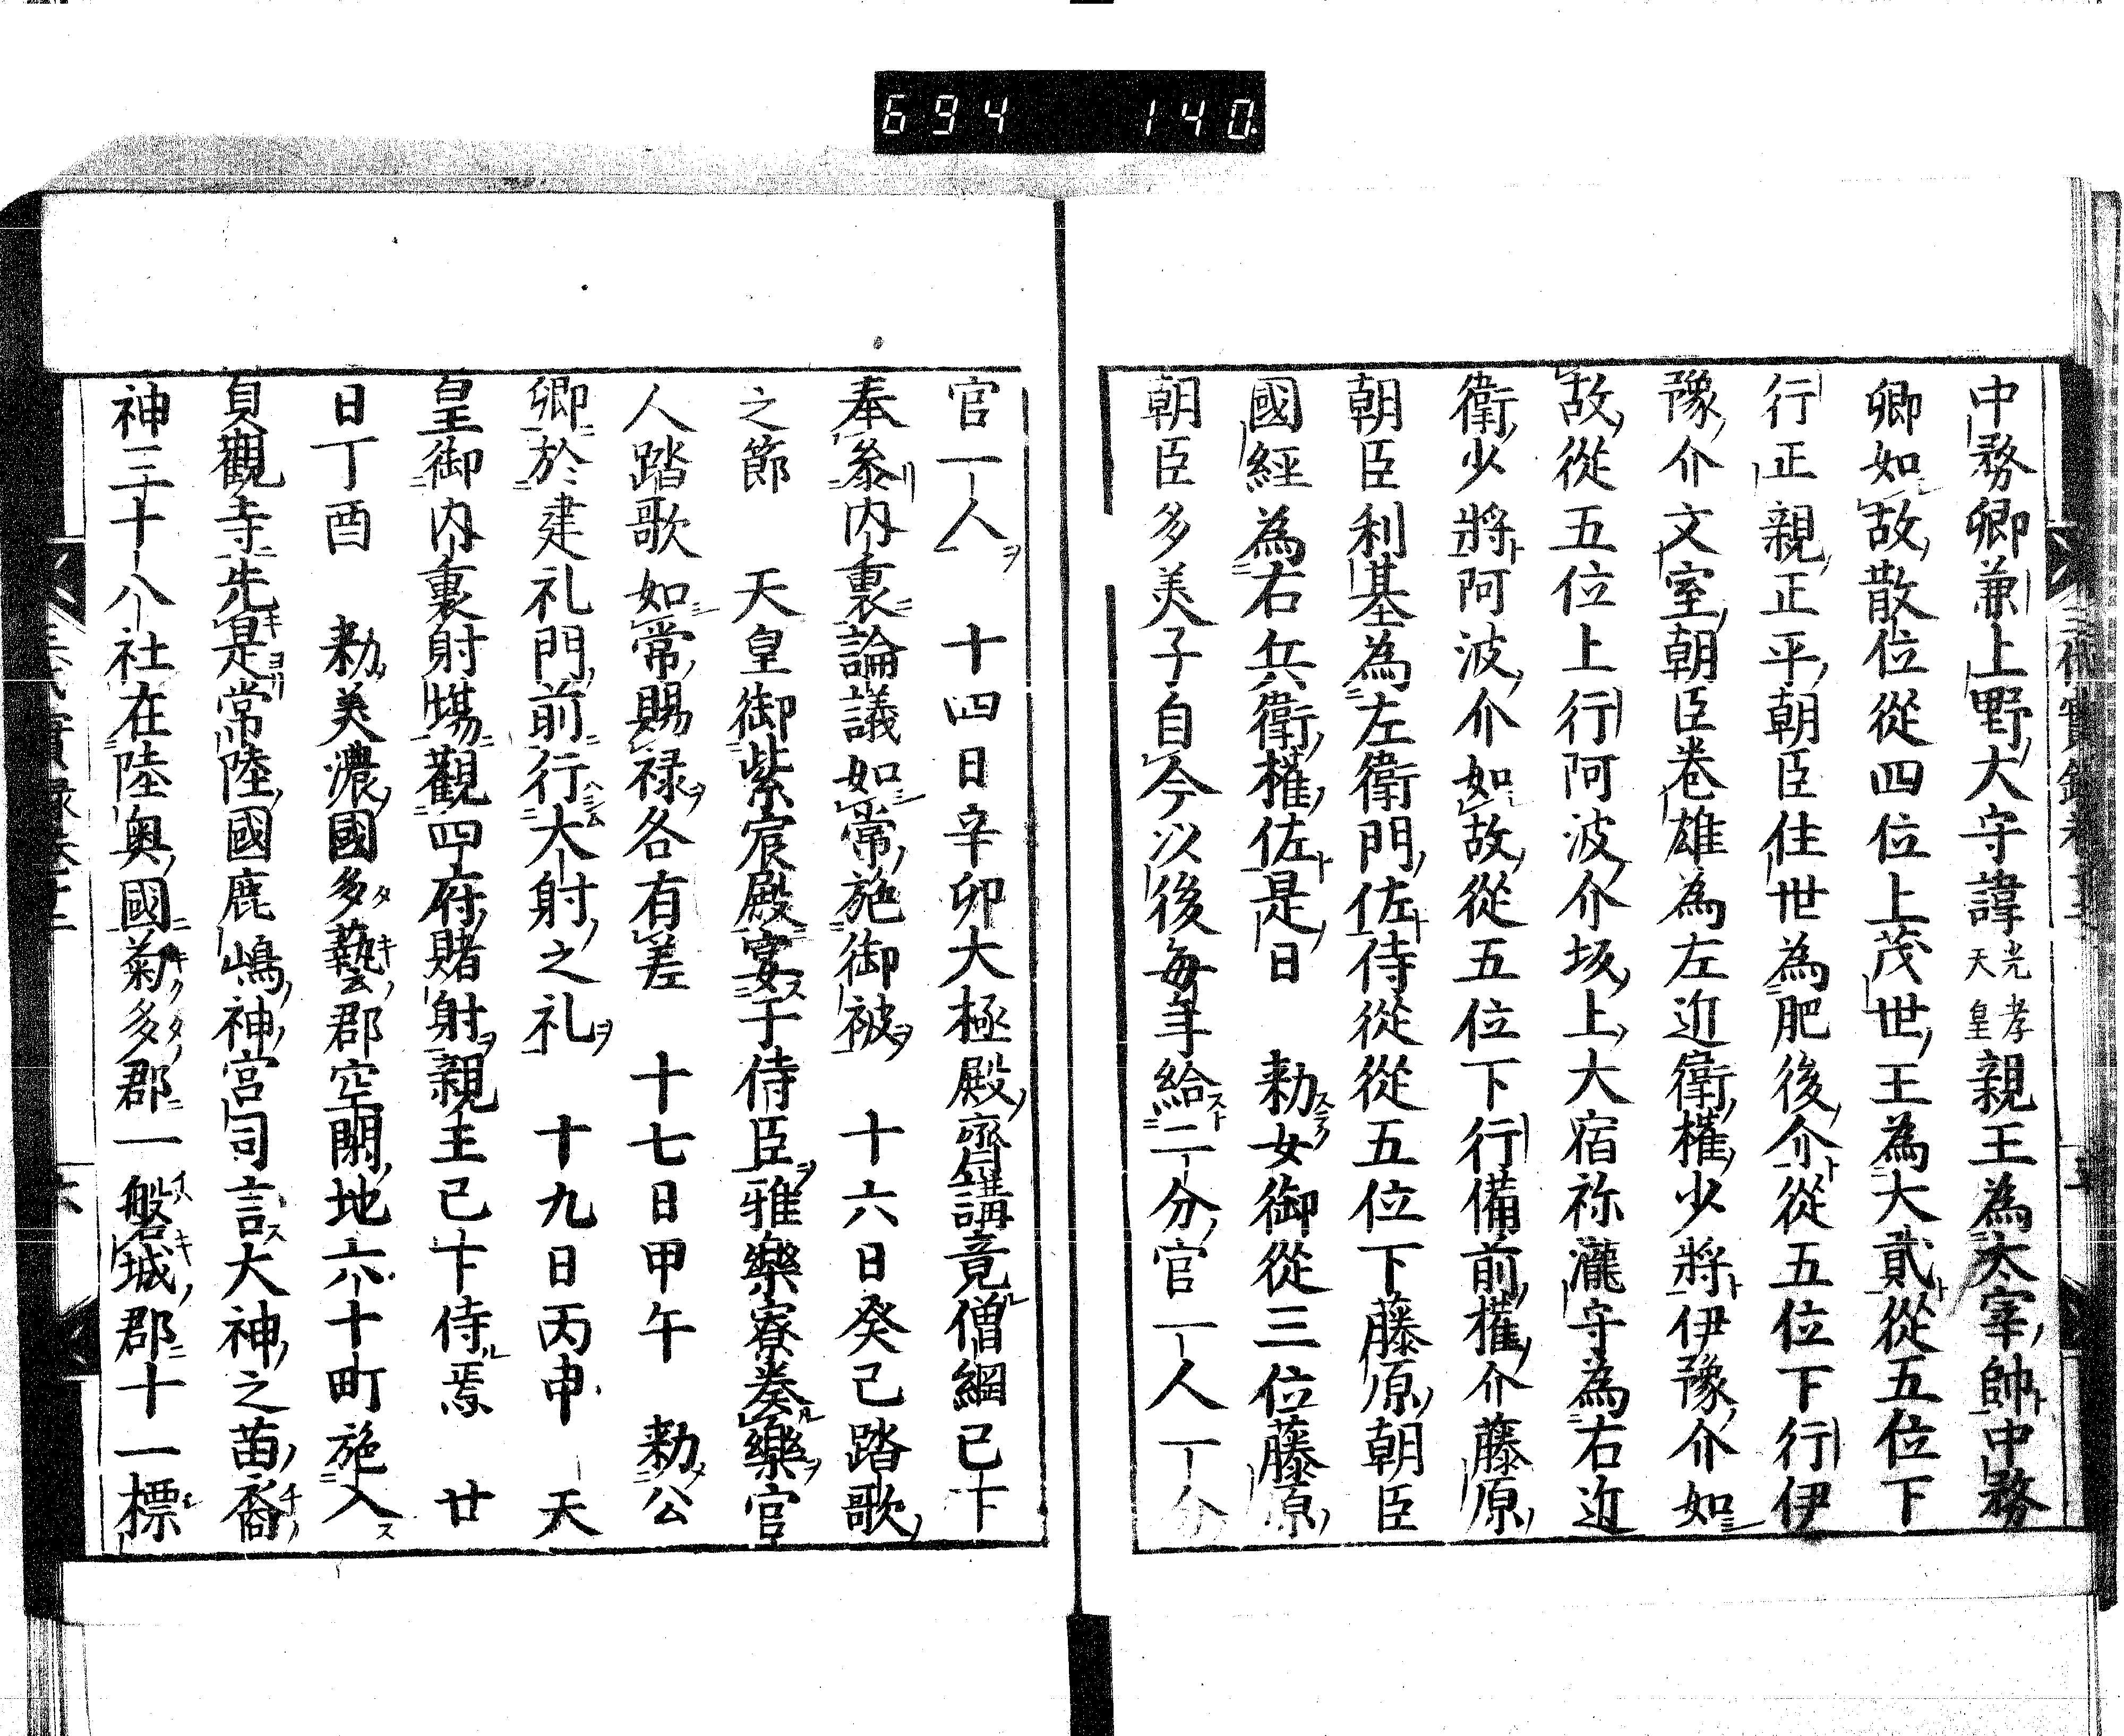 694 140
中務卿兼上野大守諱光孝天皇親王為太宰帥中務
卿如故散位從四位上茂世王為大貳從五位下
行正親正平朝臣住世為肥後介從五位下行伊
豫介文室朝臣卷雄為左近衛權少將伊豫介如
故從五位上行阿波介坂上大宿祢瀧守為右近
衛少將阿波介如故從五位下行備前權介藤原
朝臣利基為左衛門佐侍從從五位下藤原朝臣
國經為右兵衛權佐是日 勅女御從三位藤原
朝臣多美子自今以後每年給二分官一人一分
官一人 十四日辛卯大極殿齋講竟僧綱已下
奉參內裏論議如常施御被 十六日癸巳踏歌
之節 天皇御紫宸殿宴于侍臣雅樂寮奏樂宮
人踏歌如常賜祿各有差 十七日甲午 勅公
卿於建礼門前行大射之礼 十九日丙申 天
皇御內裏射場觀四府賭射親王已下侍焉 廿
日丁酉 勅美濃國多藝郡空閑地六十町施入
貞觀寺先是常陸國鹿嶋神宮司言大神之苗裔
神三十八社在陸奥國菊多郡一磐城郡十一標